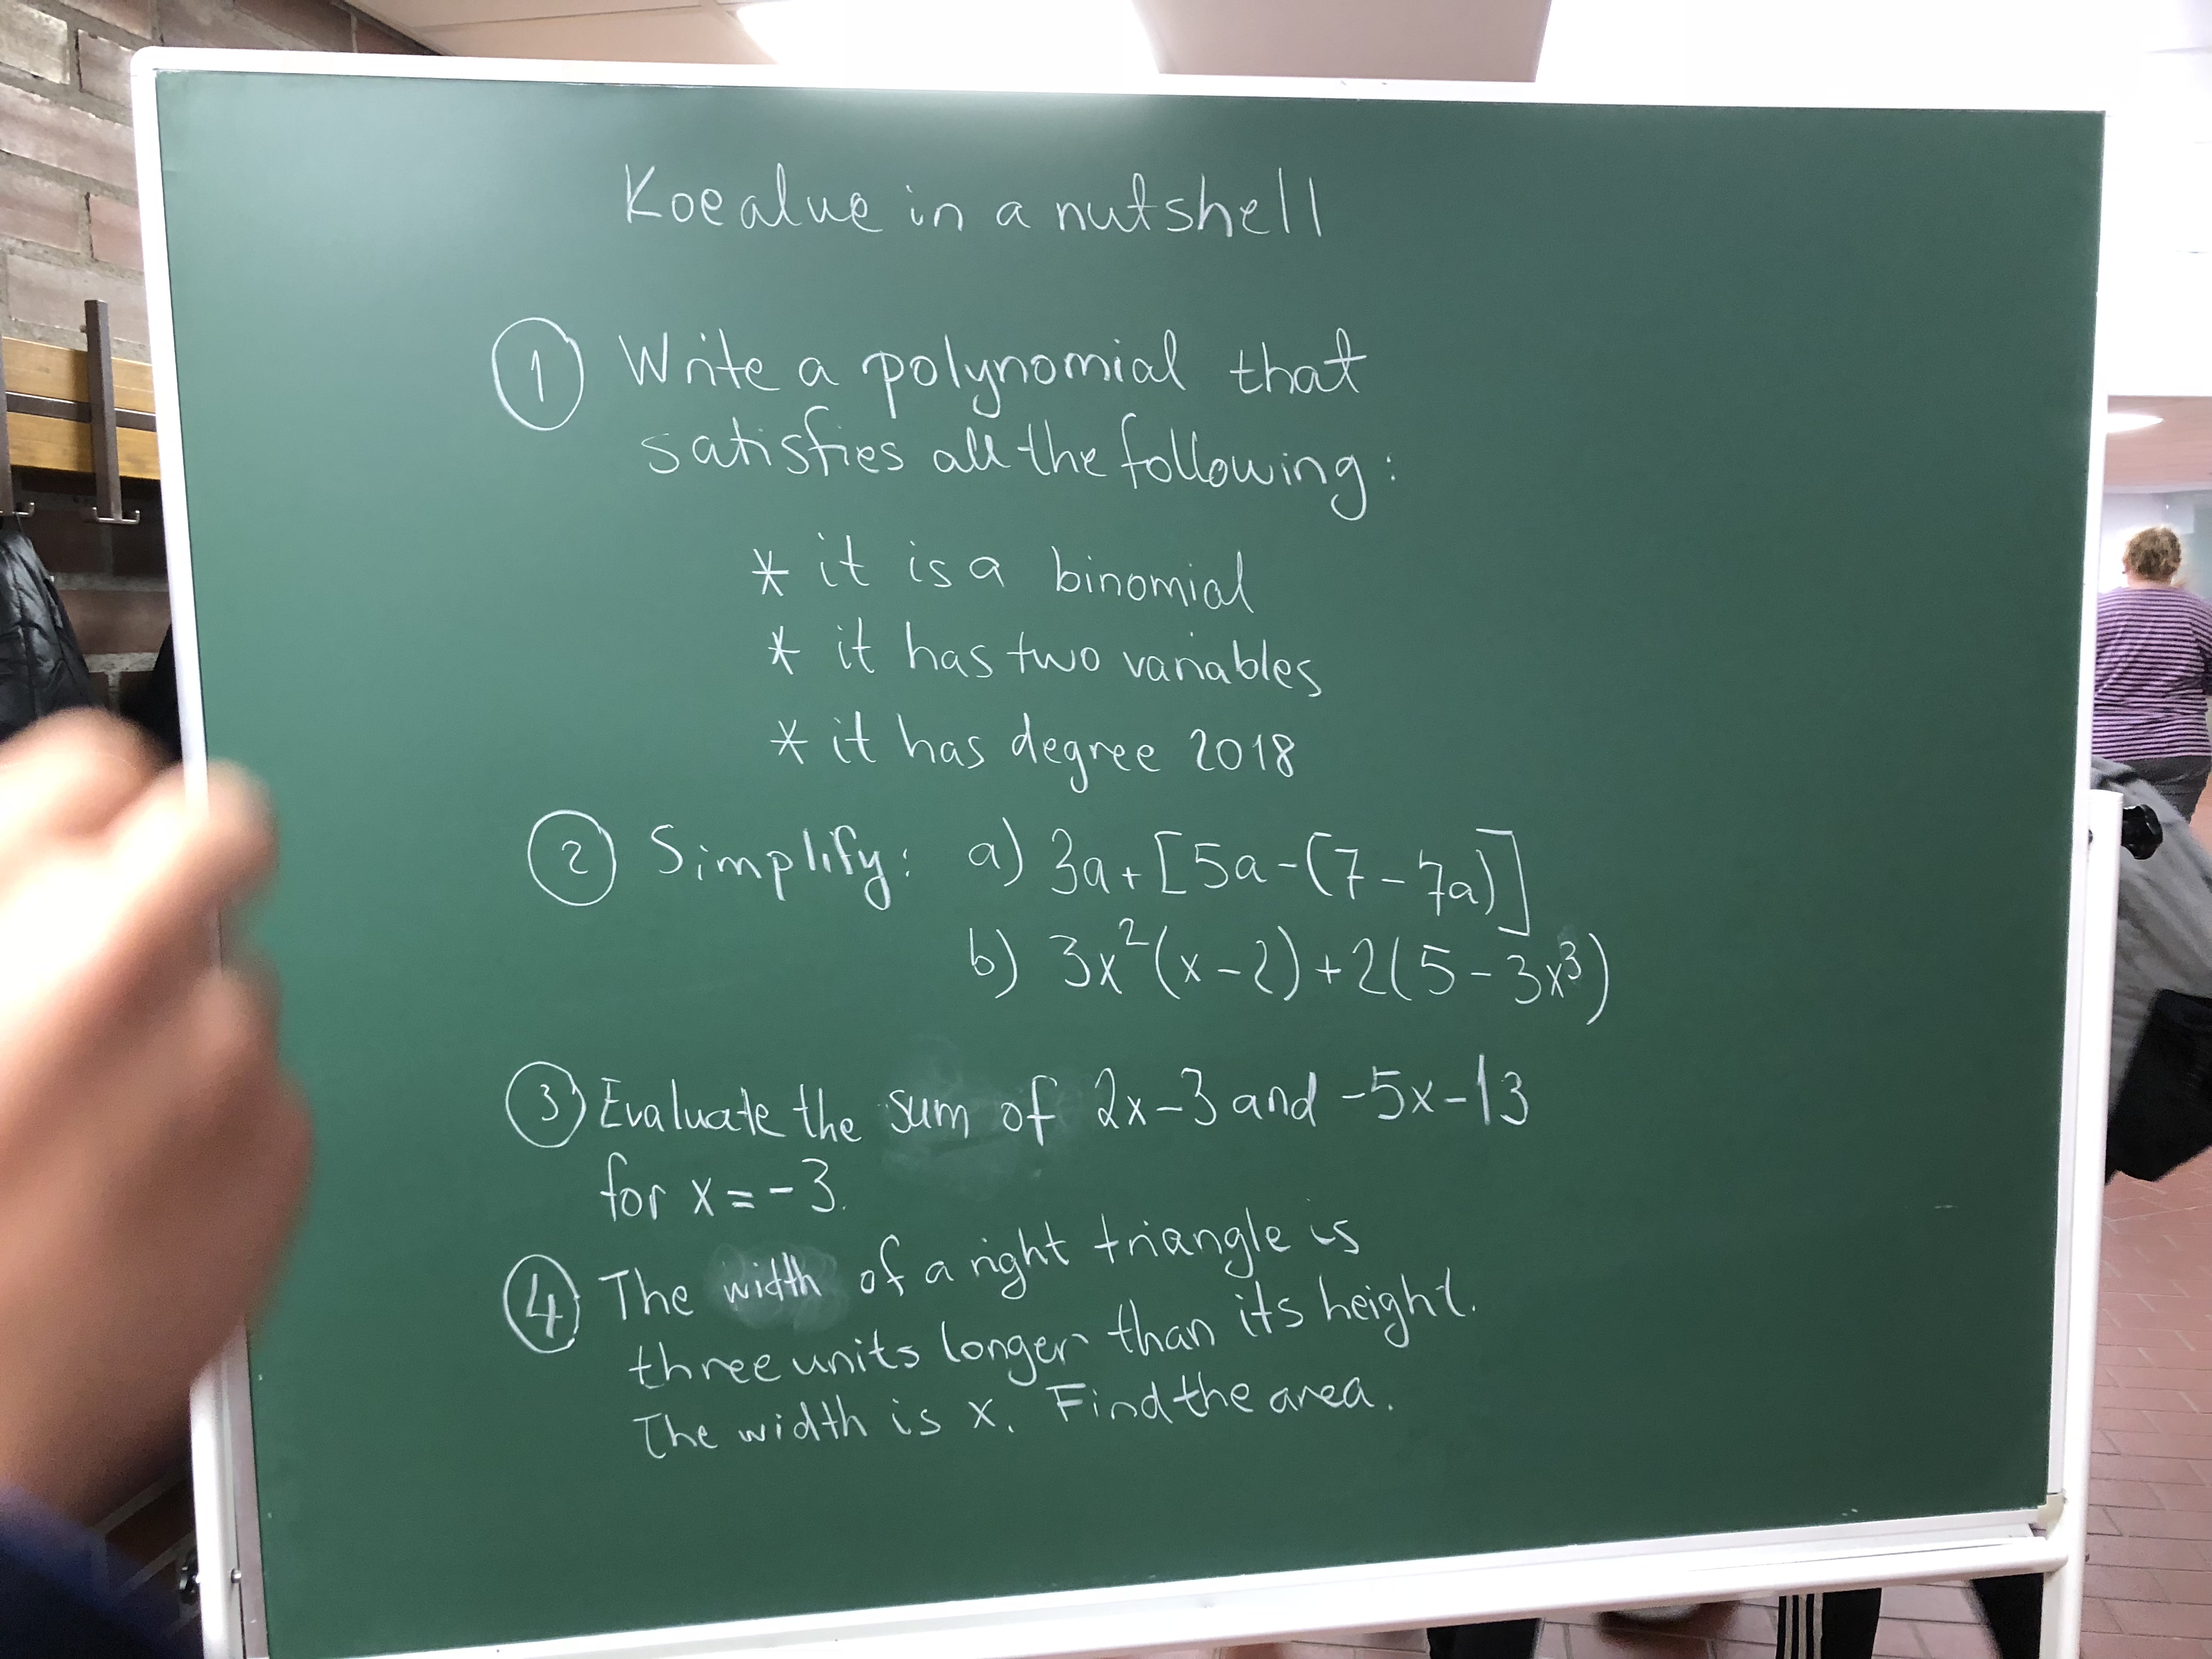 Koealue in a nutshell
① Write a polynomial that
satisfies all the following:
* it is a binomial
* it has two variables
* it has degree 2018
② Simplify: a) 3a+[5a-(7-7a)]
b) 3x²(x-2)+2(5-3x³)
③ Evaluate the sum of 2x-3 and -5x-13
for x=-3.
④ The width of a right triangle is
three units longer than its height.
The width is x. Find the area.